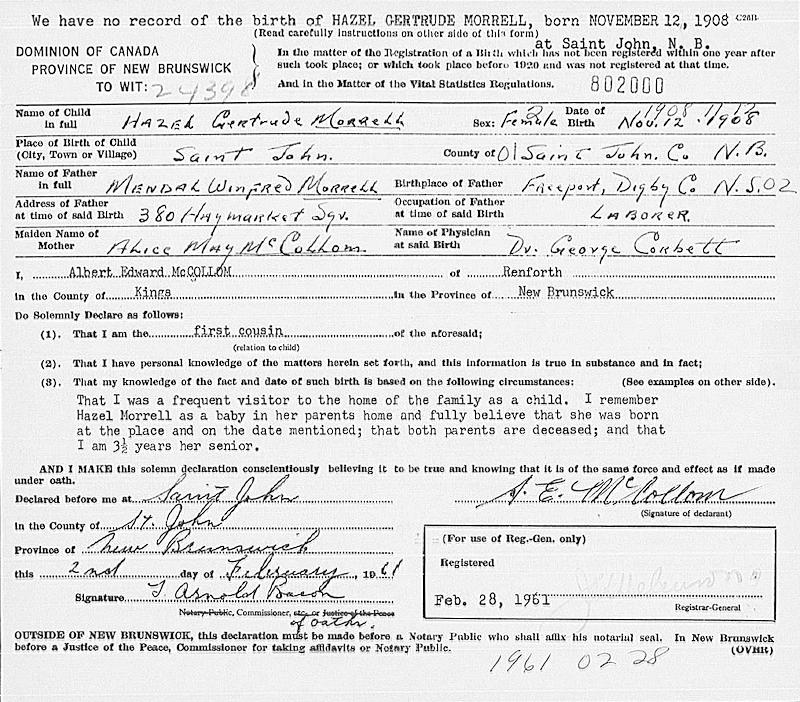 We have no record of the birth of HAZEL GERTRUDE MORRELL, born NOVEMBER 12, 1908 C28B
(Read carefully instructions on other side of this form)
at Saint John, N. B.
DOMINION OF CANADA
PROVINCE OF NEW BRUNSWICK
TO WIT: 24398
In the matter of the Registration of a Birth which has not been registered within one year after
such took place; or which took place before 1920 and was not registered at that time.
And in the Matter of the Vital Statistics Regulations. 802000
Name of Child in full HAZEL Gertrude Morrell Sex: Female 2 Date of Birth Nov. 12. 1908 1908 11 12
Place of Birth of Child (City, Town or Village) Saint John. County of 01 Saint John. Co N.B.
Name of Father in full Mendal Winfred Morrell Birthplace of Father Freeport, Digby Co N.S. 02
Address of Father at time of said Birth 380 Haymarket Sqr. Occupation of Father at time of said Birth LABORER.
Maiden Name of Mother Alice May McCollom. Name of Physician at said Birth Dr. George Corbett
I, Albert Edward McCOLLOM of Renforth
in the County of Kings in the Province of New Brunswick
Do Solemnly Declare as follows:
(1). That I am the first cousin of the aforesaid;
(relation to child)
(2). That I have personal knowledge of the matters herein set forth, and this information is true in substance and in fact;
(3). That my knowledge of the fact and date of such birth is based on the following circumstances: (See examples on other side).
That I was a frequent visitor to the home of the family as a child. I remember
Hazel Morrell as a baby in her parents home and fully believe that she was born
at the place and on the date mentioned; that both parents are deceased; and that
I am 3½ years her senior.
AND I MAKE this solemn declaration conscientiously believing it to be true and knowing that it is of the same force and effect as if made
under oath.
Declared before me at Saint John
A. E. McCollom
(Signature of declarant)
In the County of St. John
Province of New Brunswick
this 2nd day of February, 1961
Signature T. Arnold Bacon
Notary Public, Commissioner, etc. or Justice of the Peace
of oaths.
(For use of Reg.-Gen. only)
Registered
Feb. 28, 1961
Registrar-General
OUTSIDE OF NEW BRUNSWICK, this declaration must be made before a Notary Public who shall affix his notarial seal. In New Brunswick
before a Justice of the Peace, Commissioner for taking affidavits or Notary Public. (OVER)
1961 02 28